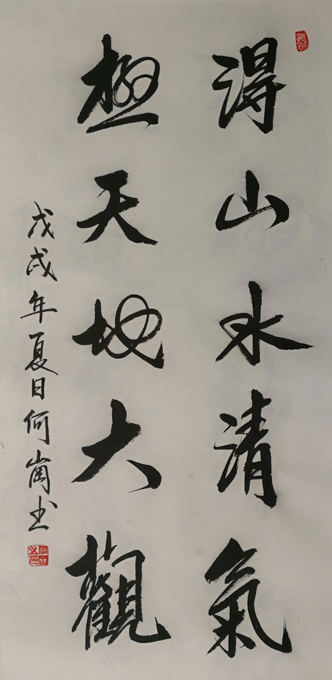 得山水清氣
極天地大觀
戊戌年夏日何崗书